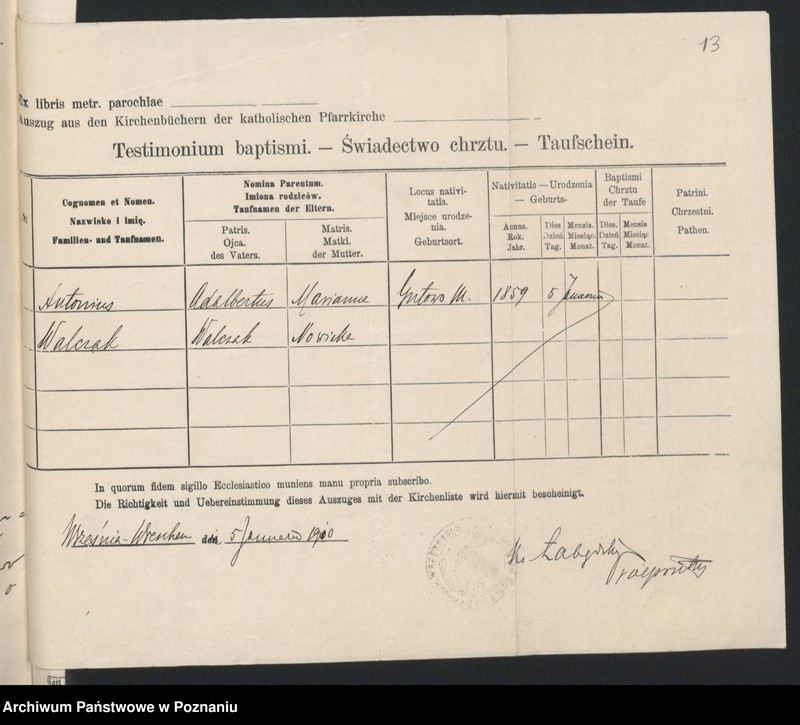 13
Ex libris metr. parochiae
Auszug aus den Kirchenbüchern der katholischen Pfarrkirche
Testimonium baptismi. — Świadectwo chrztu. — Taufschein.
Cognomen et Nomen.
Nazwisko i imię.
Familien- und Taufnamen.
Nomina Parentum.
Imiona rodziców.
Taufnamen der Eltern.
Patris.
Ojca.
des Vaters.
Matris.
Matki.
der Mutter.
Locus nativi-
tatis.
Miejsce urodze-
nia.
Geburtsort.
Nativitatis — Urodzenia
— Geburts-
Annus.
Rok.
Jahr.
Dies
Dzień
Tag.
Mensis.
Miesiąc.
Monat.
Baptismi
Chrztu
der Taufe
Dies.
Dzień
Tag.
Mensis
Miesiąc
Monat.
Patrini.
Chrzestni.
Pathen.
Antonius Adalbertus Marianna Gutowo M. 1859 5 Januarii
Walczak Walczak Nowicka
In quorum fidem sigillo Ecclesiastico muniens manu propria subscribo.
Die Richtigkeit und Uebereinstimmung dieses Auszuges mit der Kirchenliste wird hiermit bescheinigt.
Września-Wreschen den 5 Januarii 1910
Archiwum Państwowe w Poznaniu